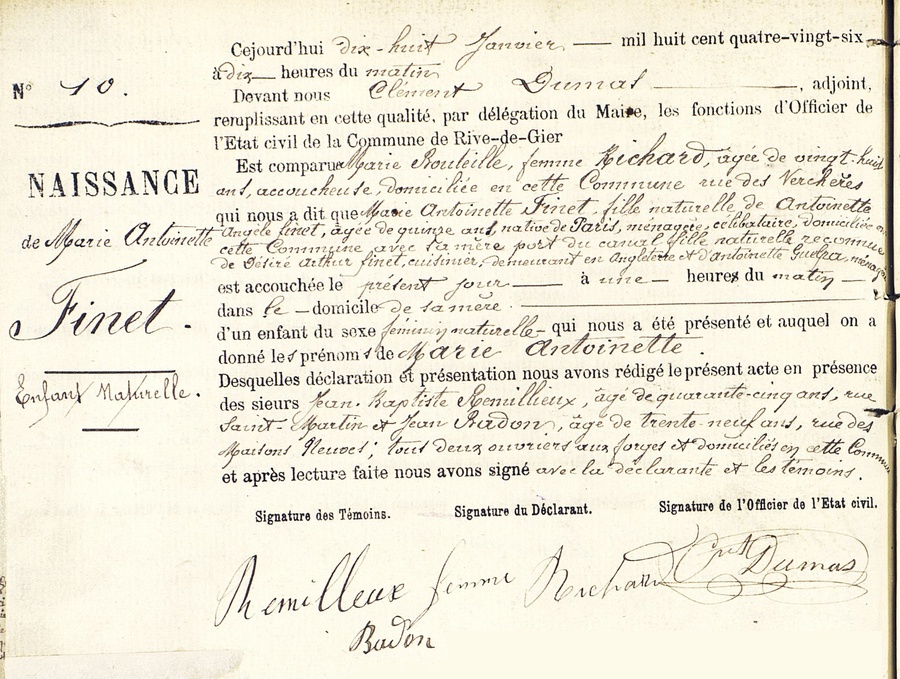 N° 10.
NAISSANCE
de Marie Antoinette
Finet.
Enfant Naturelle.
Cejourd'hui dix-huit Janvier — mil huit cent quatre-vingt-six
à dix — heures du matin
Devant nous Clément Dumas —, adjoint,
remplissant en cette qualité, par délégation du Maire, les fonctions d'Officier de
l'Etat civil de la Commune de Rive-de-Gier
Est comparue Marie Bouteille, femme Richard, âgée de vingt-huit
ans, accoucheuse, domiciliée en cette Commune rue des Verchères
qui nous a dit que Marie Antoinette Finet, fille naturelle de Antoinette
Angèle finet, âgée de quinze ans, native de Paris, ménagère, célibataire, domiciliée en
cette Commune avec sa mère port du canal fille naturelle reconnue
de Désiré Arthur finet, cuisinier, demeurant en Angleterre et d'Antoinette Guelpa, ménagère
est accouchée le présent jour — à une — heures du matin —
dans le — domicile de sa mère.
d'un enfant du sexe féminin naturelle — qui nous a été présenté et auquel on a
donné les prénoms de Marie Antoinette.
Desquelles déclaration et présentation nous avons rédigé le présent acte en présence
des sieurs Jean-Baptiste Remillieux, âgé de quarante-cinq ans, rue
Saint-Martin et Jean Badon, âgé de trente-neuf ans, rue des
Maisons Neuves; tous deux ouvriers aux forges et domiciliés en cette Commune
et après lecture faite nous avons signé avec la déclarante et les témoins.
Signature des Témoins. Signature du Déclarant. Signature de l'Officier de l'Etat civil.
Remilleux femme Richard Cnt Dumas
Badon